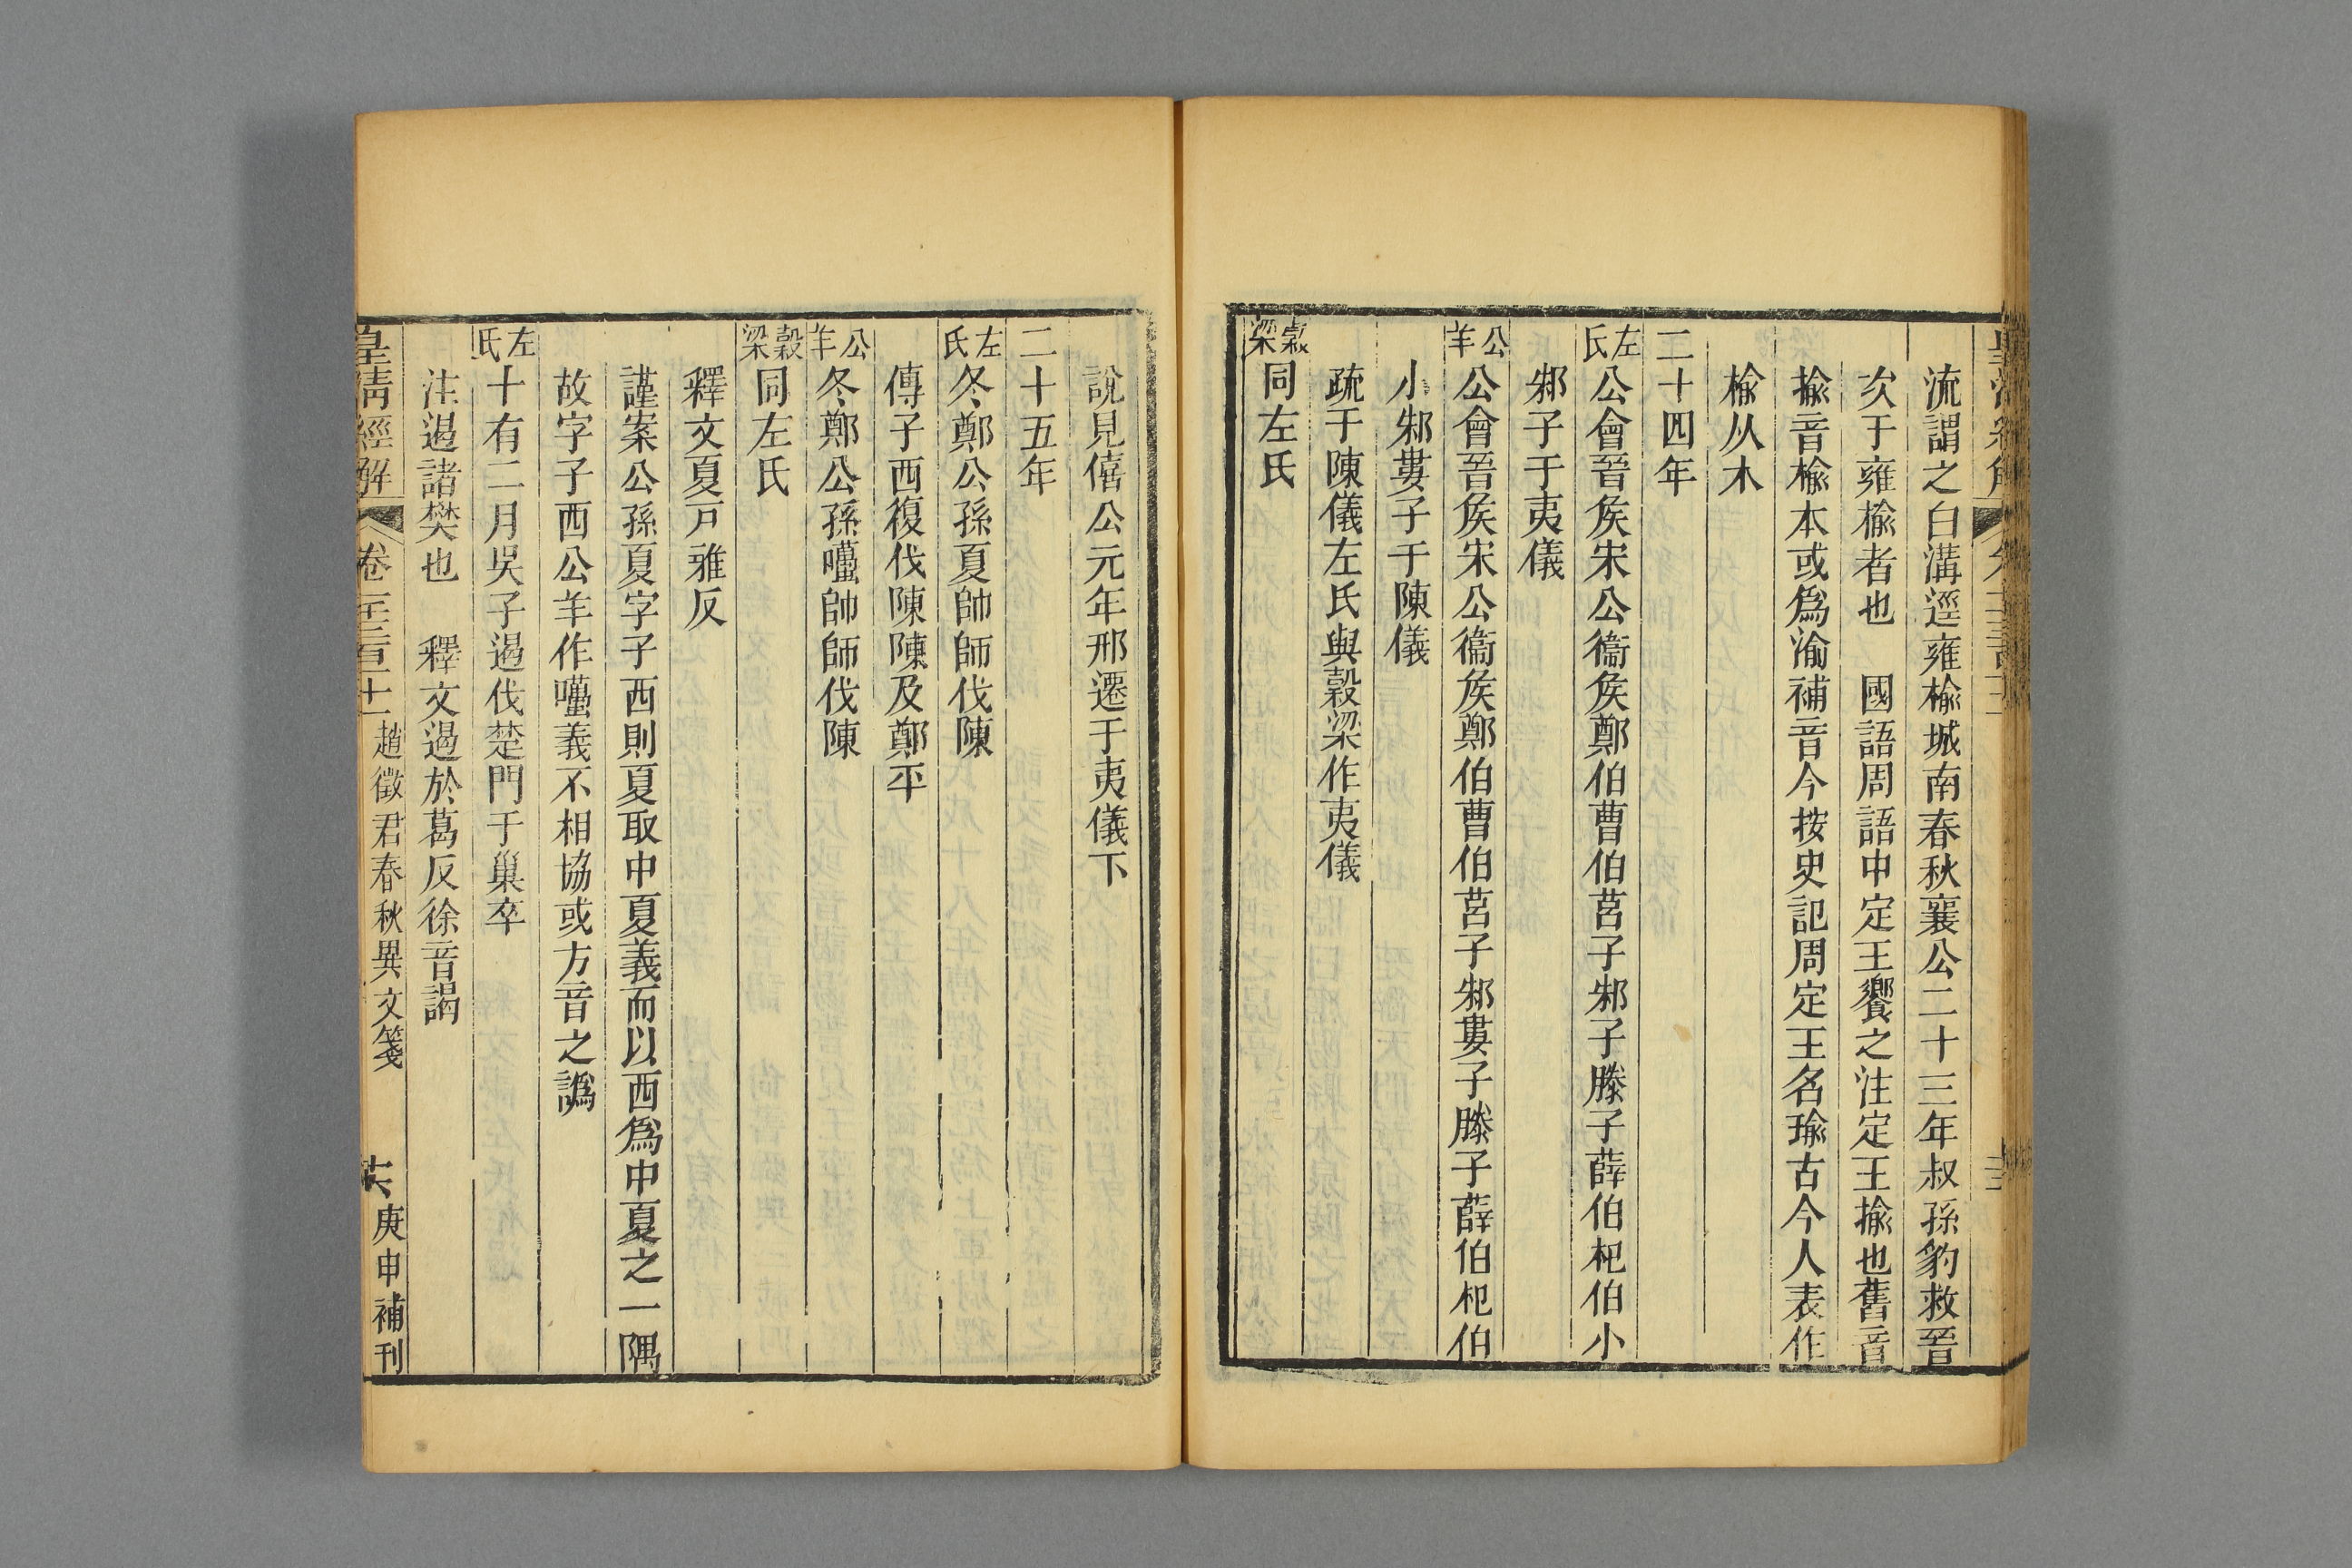 流謂之白溝逕雍榆城南春秋襄公二十三年叔孫豹救晉
次于雍榆者也　國語周語中定王饗之注定王揄也舊音
揄音榆本或爲渝補音今按史記周定王名瑜古今人表作
榆从木
二十四年
左氏公會晉矦宋公衞矦鄭伯曹伯莒子邾子滕子薛伯杞伯小
邾子于夷儀
公羊公會晉矦宋公衞矦鄭伯曹伯莒子邾婁子滕子薛伯杞伯
小邾婁子于陳儀
疏于陳儀左氏與穀梁作夷儀
穀梁同左氏
說見僖公元年邢遷于夷儀下
二十五年
左氏冬鄭公孫夏帥師伐陳
傳子西復伐陳陳及鄭平
公羊冬鄭公孫囆帥師伐陳
穀梁同左氏
釋文夏戸雅反
謹案公孫夏字子西則夏取中夏義而以西爲中夏之一隅
故字子西公羊作囆義不相協或方音之譌
左氏十有二月吳子遏伐楚門于巢卒
注遏諸樊也　釋文遏於葛反徐音謁
皇清經解　卷一千三百二十一　趙徵君春秋異文箋　庚申補刊